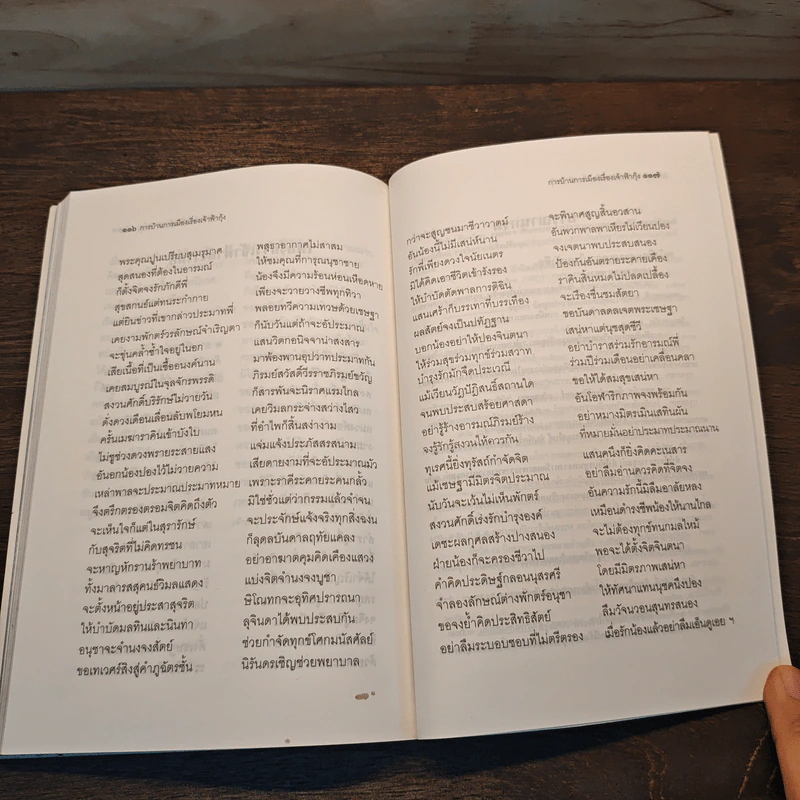 ๑๑๖ การบ้านการเมืองเรื่องเจ้าฟ้ากุ้ง
พระคุณปูนเปรียบสุเมรุมาศ พสุธาอากาศไม่สาสม
สุดสนองที่ต้องในอารมณ์ ให้ชมคุณที่การุณนุชาชาย
ก็ตั้งจิตจงรักภักดีพี่ น้องจึงมีความร้อนห่อนเหือดหาย
สุขสกนธ์แต่ทนระกำกาย เพียงจะวายวางชีพทุกทิวา
แต่ยินข่าวที่เขากล่าวประมาทพี่ พลอยทวีความเทวษด้วยเชษฐา
เคยงามพักตร์วรลักษณ์จำเริญตา ก็นับวันแต่ถ้าจะอัประมาณ
จะชุ่นคล้ำช้ำใจอยู่ในอก แสนวิตกอนิจจาน่าสงสาร
เสียเนื้อที่เป็นเชื้ออนงค์นาน มาพ้องพานอุปวาทประมาทกัน
เคยสมบูรณ์ในจุลจักรพรรดิ ภิรมย์สวัสดิ์วีรราชภิรมย์ขวัญ
สงวนศักดิ์บริรักษ์ไม่วายวัน ก็สารพันจะนิราศแรมไกล
ดั่งดวงเดือนเลื่อนลับพโยมหน เคยวิมลกระจ่างสว่างไสว
ครั้นเมฆาราคินเข้าบังใบ ที่อำไพก็สิ้นสง่างาม
ไม่ชูช่วงดวงพรายระสายแสง แจ่มแจ้งประภัสสรสนาม
อันอกน้องปองไว้ไม่วายความ เสียดายงามที่จะอัประมาณมัว
เหล่าพาลจะประมาณประมาทหมาย เพราะราคีระคายระคนกลั้ว
จึงตรึกตรองตรอมจิตคิดถึงตัว มิใช่ชั่วแต่ว่ากรรมแล้วจำจน
จะเห็นใจก็แต่ในสุรารักษ์ จะประจักษ์แจ้งจริงทุกสิ่งฉงน
กับสุจริตที่ไม่คิดทรชน ก็ลุดลบันดาลฤทัยแคลง
จะหาญหักรานร้าวพยาบาท อย่าอาฆาตคุมคิดเคืองแสวง
ทั้งมาลารสสุคนธ์วิมลแสดง แบ่งจิตจำนงจงบูชา
จะตั้งหน้าอยู่ประสาสุจริต ษิโณทกจะอุทิศปรารถนา
ให้บำบัดมลทินและนินทา ลุจินดาได้พบประสบกัน
อนุชาจะจำนงจงสัตย์ ช่วยกำจัดทุกข์โศกมนัสศัลย์
ขอเทเวศร์สิงสู่คำภูฉัตรชั้น นิรันดรเชิญช่วยพยาบาล
การบ้านการเมืองเรื่องเจ้าฟ้ากุ้ง ๑๑๗
กว่าจะสูญชนมาชีวาวาตม์ จะพินาศสูญสิ้นอวสาน
อันน้องนี้ไม่มีเสน่ห์นาน อันพวกพาลพาเหียรไม่เวียนปอง
รักพี่เพียงดวงใจนัยเนตร จงเจตนาพบประสบสนอง
มิได้คิดเอาชีวิตเข้ารังรอง ป้องกันอันตรายระคายเคือง
ให้บำบัดตัดพาลการติฉิน ราคินสิ้นหมดไม่ปลดเปลื้อง
แสนเศร้ากับรรเทาที่บรรเทือง จะเรื่องชื่นชมสัตยา
ผลสัตย์จงเป็นปทัฏฐาน ขอบันดาลดลเจตพระเชษฐา
บอกน้องอย่าให้ปองจินตนา เสน่หาแต่นุชสุดชีวี
ให้ร่วมสุขร่วมทุกข์ร่วมสวาท อย่าบำราสร่วมรักอารมณ์พี่
บำรุงรักมักจึดประเวณี ร่วมปีร่วมเดือนอย่าเคลื่อนคลา
แม้เวียนวัฏปฏิสนธิ์สถานใด ขอให้ได้สมสุขเสน่หา
จนพบประสบสร้อยศาสดา อันโอฬาริกภาพจงพร้อมกัน
อย่ารู้ร้างอารมณ์ภิรมย์ร้าง อย่าหมางมิตรเมินเสทินผัน
จงรู้รักรู้สงวนให้อวรกัน ที่หมายมั่นอย่าประมาทประมาณนาน
ทุเรศนี้ยิ่งทุรัสถ์กำจัดจิต แสนคนึงก็ยิ่งคิดคะเนสาร
แม้เชษฐามีมิตรจิตประมาณ อย่าลืมอ่านควรคิดที่จิตจง
นับวันจะเว้นไม่เห็นพักตร์ อันความรักนี้มีลืมอาลัยหลง
สงวนศักดิ์เร่งรักบำรุงองค์ เหมือนดำรงชีพน้องให้นานไกล
เดชะผลกุศลสร้างปางสนอง จะไม่ต้องทุกข์ทนกมลไหม้
ฝ่ายน้องก็จะครองชีวาไป พอจะได้ตั้งจิตจินตนา
คำคิดประดิษฐ์กลอนนุสรศรี โดยมีมิตรภาพเสน่หา
จำลองลักษณ์ต่างพักตร์อนุชา ให้ทัศนาแทนนุชคนึงปอง
ขอจงย้ำคิดประสิทธิสัตย์ ลืมวัจนวอนสุนทรสนอง
อย่าลืมระบอบชอบที่ไม่ตรีตรอง เมื่อรักน้องแล้วอย่าลืมเอ็นดูเอย ฯ